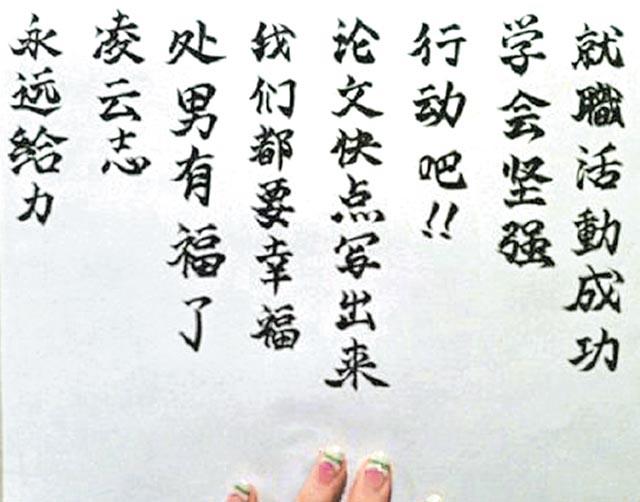 就職活動成功
学会坚强
行动吧!!
论文快点写出来
我们都要幸福
处男有福了
凌云志
永远给力